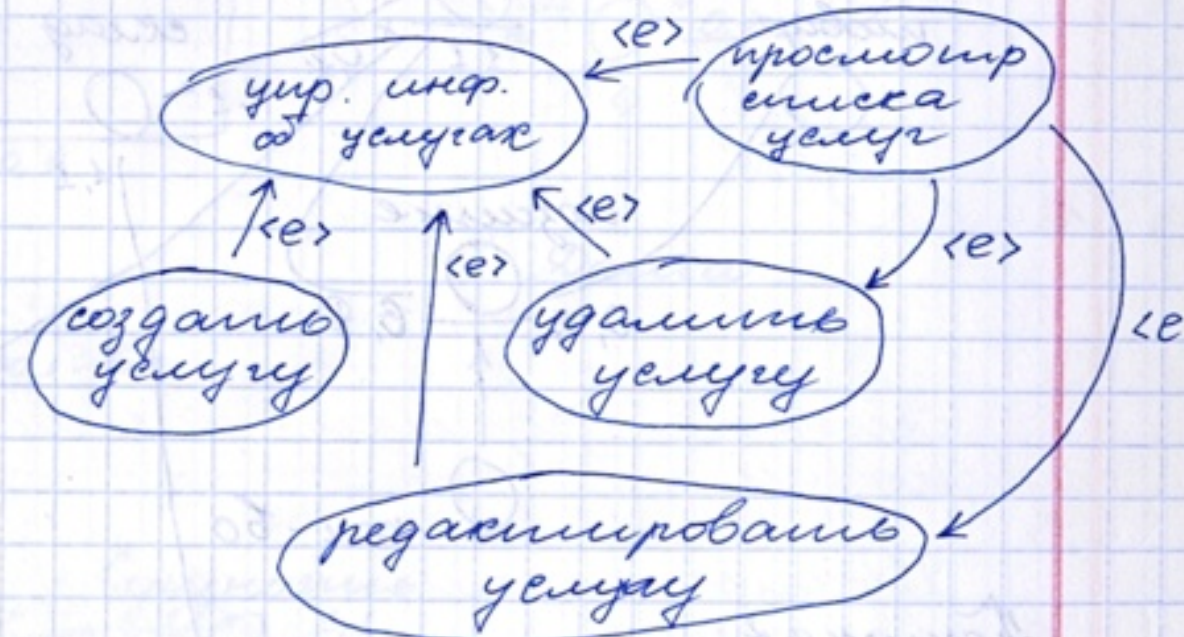 <e>
упр. инф.
об услугах
просмотр
списка
услуг
<e>
<e>
<e>
<e>
создать
услугу
удалить
услугу
<e
редактировать
услугу